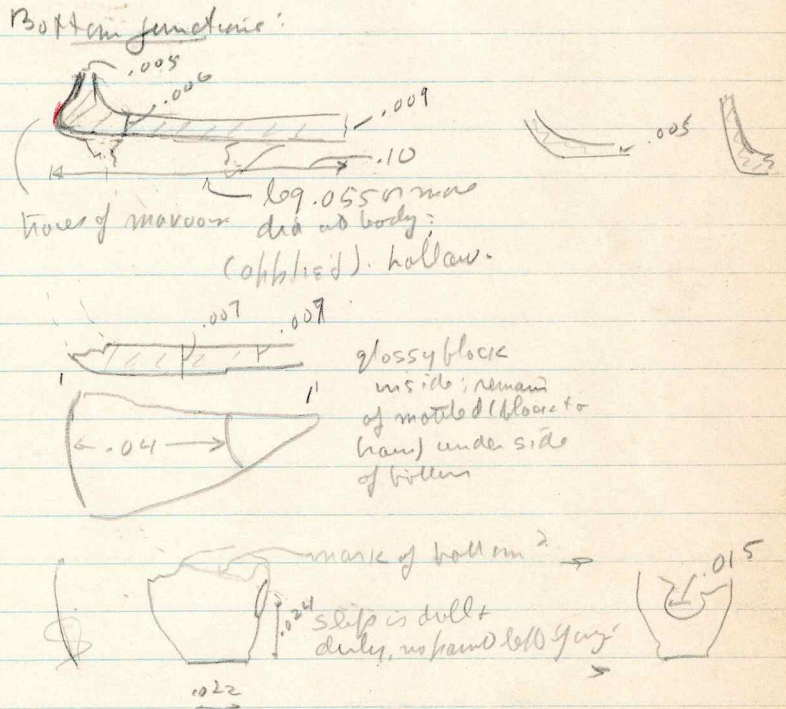 Bottom junctions:
.005
.006
.009
.005
.10
leg .055 or more
traces of maroon dia at body;
(applied). hollow.
.007
.009
glossy black
inside; remain
of mottled (black to
) under side
of bottom
.04
mark of bottom ?
.015
.024
slip is dull &
no paint left
.022